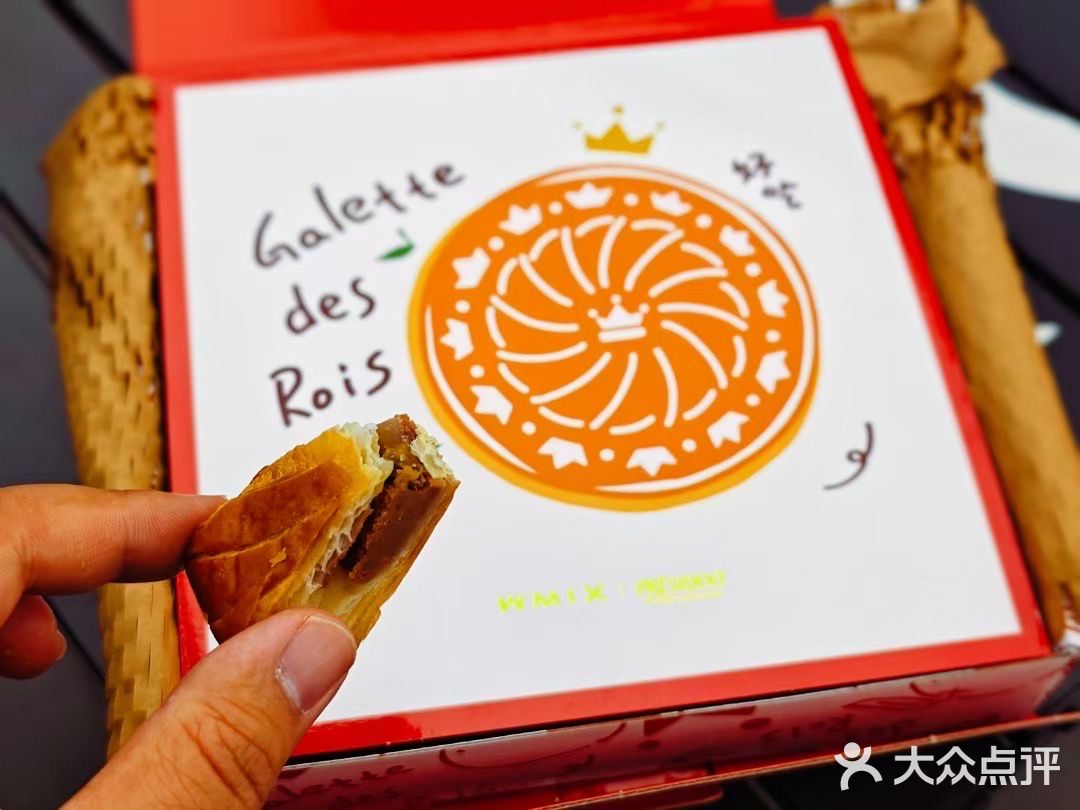 Galette
des
Rois
好吃
WMIX | PRÉSIDENT
大众点评